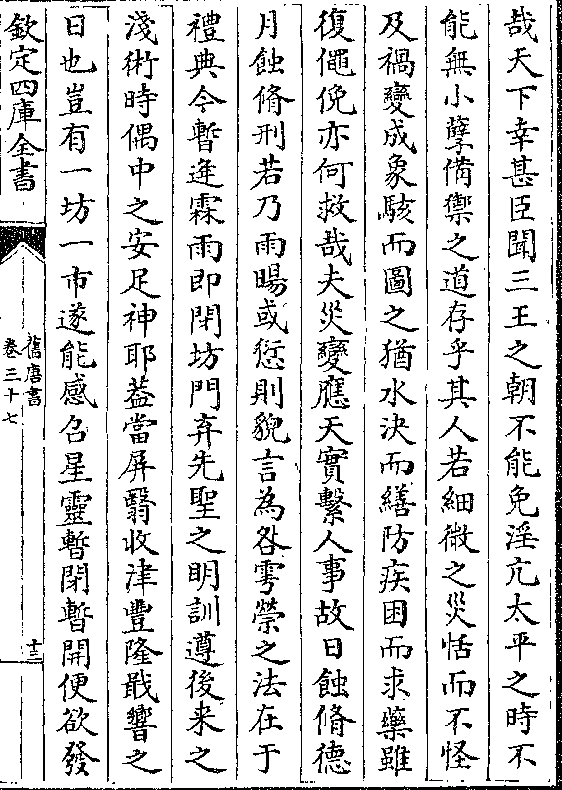 哉天下幸甚臣聞三王之朝不能免淫亢太平之時不
能無小孽備禦之道存乎其人若細微之災恬而不怪
及禍變成象駭而圖之猶水決而繕防疾困而求藥雖
復僶俛亦何救哉夫災變應天實繫人事故日蝕脩德
月蝕脩刑若乃雨暘或愆則貌言為咎雩禜之法在于
禮典今暫逢霖雨即閉坊門弃先聖之明訓遵後来之
淺術時偶中之安足神耶葢當屏翳收津豐隆戢響之
日也豈有一坊一市遂能感召星靈暫閉暫開便欲發
欽定四庫全書
舊唐書
卷三十七
十三